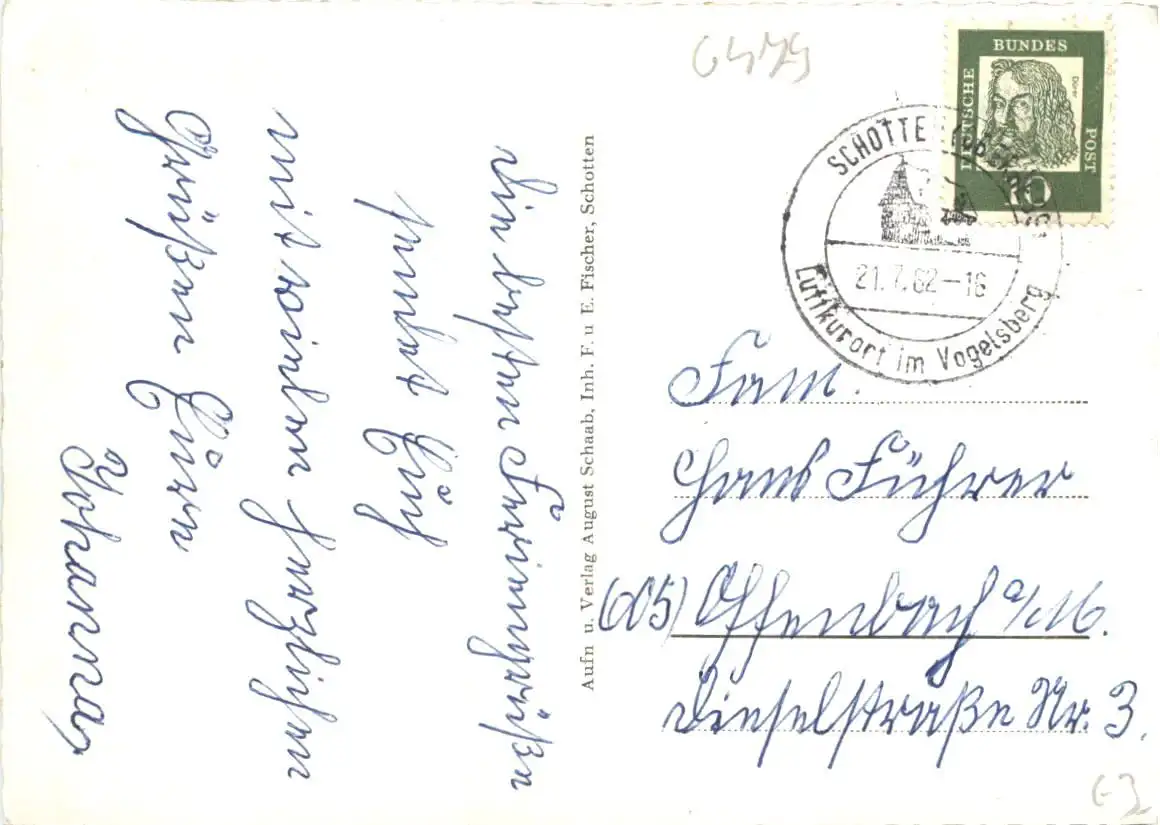 6479
DEUTSCHE BUNDES POST
Dürer
10
SCHOTTEN
21.7.62–16
Luftkurort im Vogelsberg
Die besten Feriengrüße
sendet Euch
mit herzlichen
Grüßen Eure
Johanna,
Aufn u. Verlag August Schaab, Inh. F. u E. Fischer, Schotten
Fam.
Hans Führer
(605) Offenbach a/M.
Dieselstraße Nr. 3.